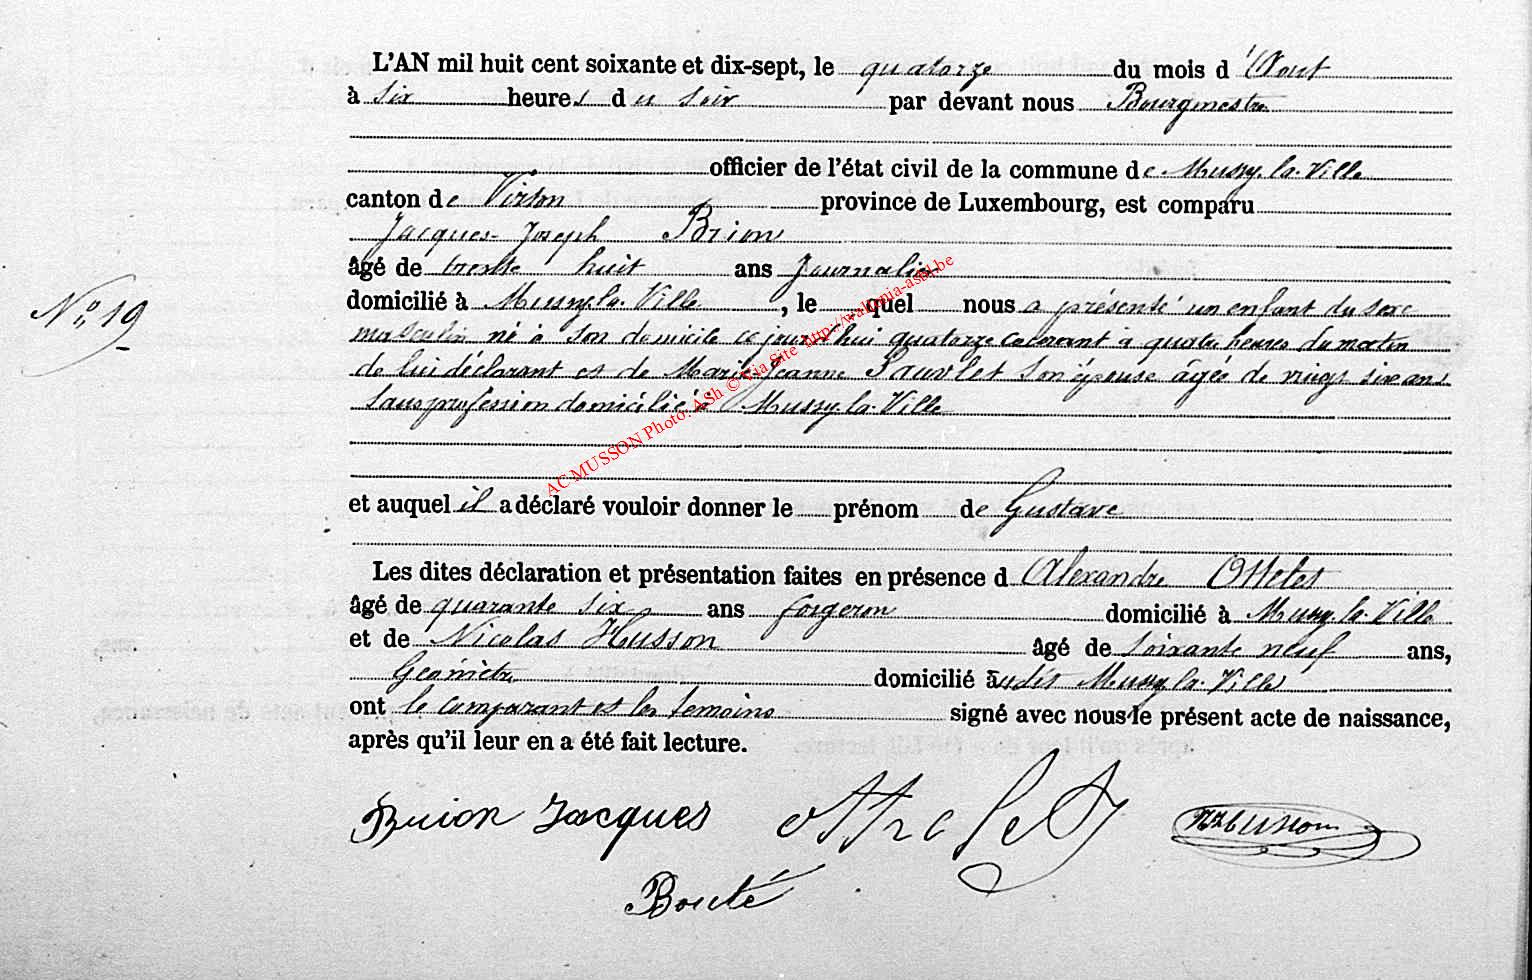 L'AN mil huit cent soixante et dix-sept, le quatorze du mois d'Aout
à six heures du soir par devant nous Bourgmestre
officier de l'état civil de la commune de Mussy-la-Ville
canton de Virton province de Luxembourg, est comparu
Jacques-Joseph Brion
âgé de trente huit ans Journalier
domicilié à Mussy-la-Ville, lequel nous a présenté un enfant du sexe
N° 19
masculin né à son domicile ce jourd'hui quatorze courant à quatre heures du matin
de lui déclarant et de Marie Jeanne son épouse âgée de vingt six ans
sans profession domiciliée à Mussy-la-Ville
AC MUSSON Photo: ASh © Via Site http://wallonia-asbl.be
et auquel il a déclaré vouloir donner le prénom de Gustave
Les dites déclaration et présentation faites en présence d Alexandre
âgé de quarante six ans forgeron domicilié à Mussy-la-Ville
et de Nicolas Husson âgé de soixante neuf ans,
Géomètre domicilié audit Mussy-la-Ville
ont le comparant et les temoins signé avec nous le présent acte de naissance,
après qu'il leur en a été fait lecture.
Brion Jacques Husson
Bouté